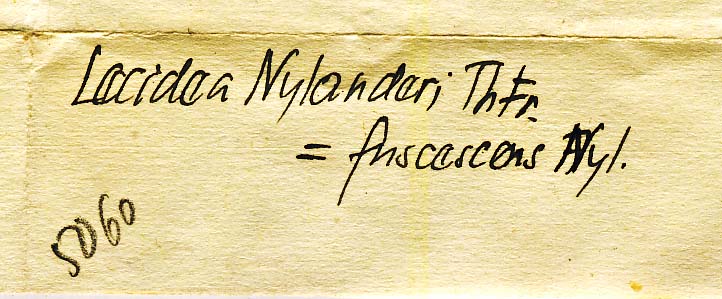 Lecidea Nylanderi Th Fr.
= fuscescens Nyl.
5060